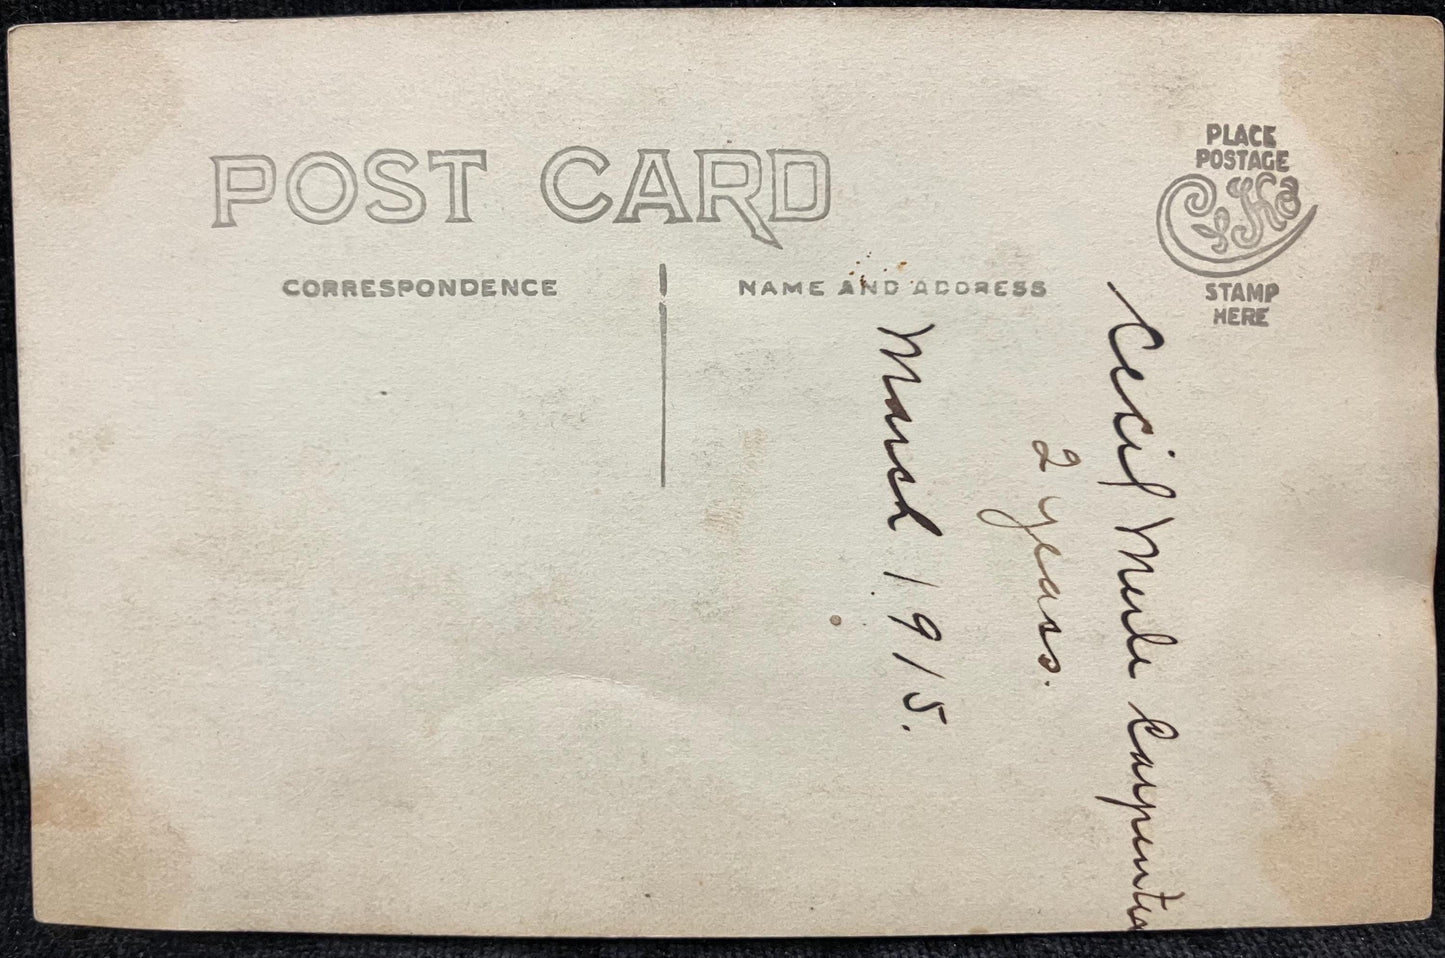 POST CARD
CORRESPONDENCE
NAME AND ADDRESS
PLACE
POSTAGE
STAMP
HERE
Cecil Merle Carpenter
2 years.
March 1915.